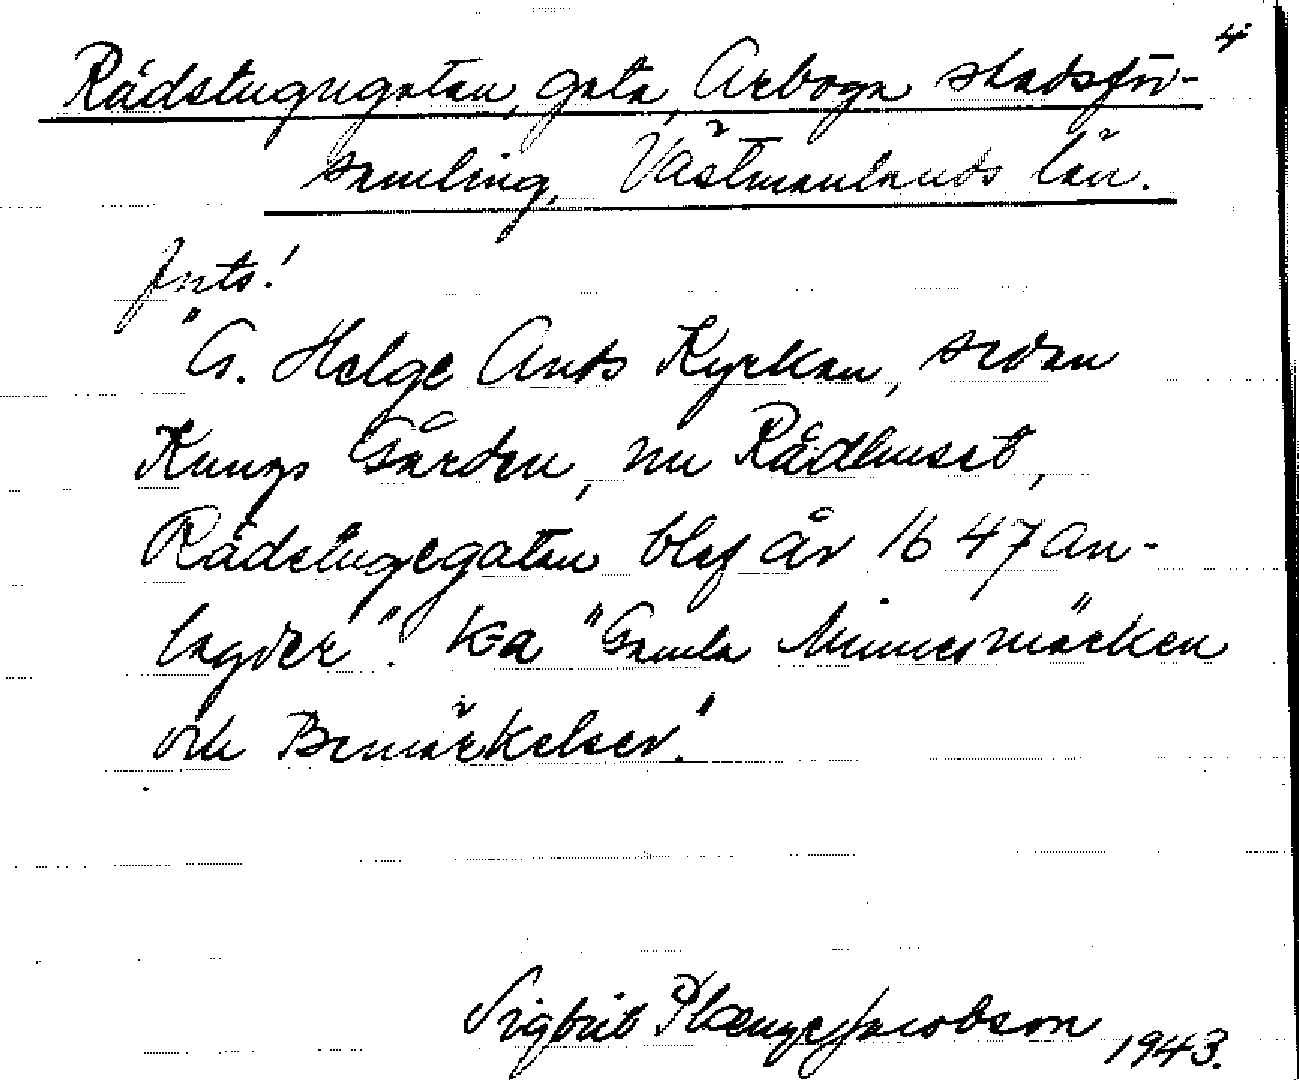 4
Rådstugugatan, gata, Arboga stadsför-
samling, Västmanlands län.
"G. Helge Ants Kyrkan, sedan
Kungs Gården, nu Rådhuset,
Rådstugegatan blef år 1647 an-
lagder". "Gamla Minnesmärken
och Bemärkelser."
Sigbrit Plænge Jacobson 1943.